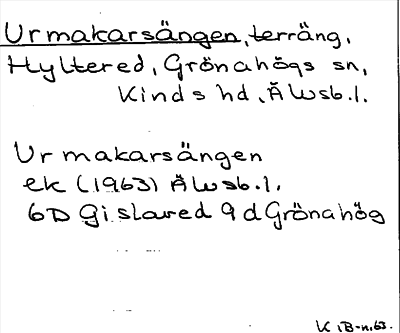 Urmakarsängen, terräng,
Hyltered, Grönahögs sn,
Kinds hd, Älvsb. l.
Urmakarsängen
ek (1963) Älvsb. l.
6D Gislaved 9 d Grönahög